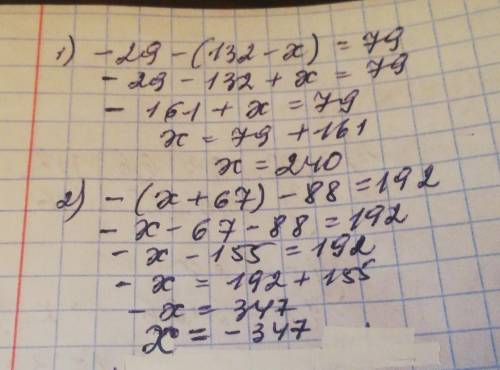 1) - 29 - (132 - x) = 79
- 29 - 132 + x = 79
- 161 + x = 79
x = 79 + 161
x = 240
2) - (x + 67) - 88 = 192
- x - 67 - 88 = 192
- x - 155 = 192
- x = 192 + 155
- x = 347
x = - 347